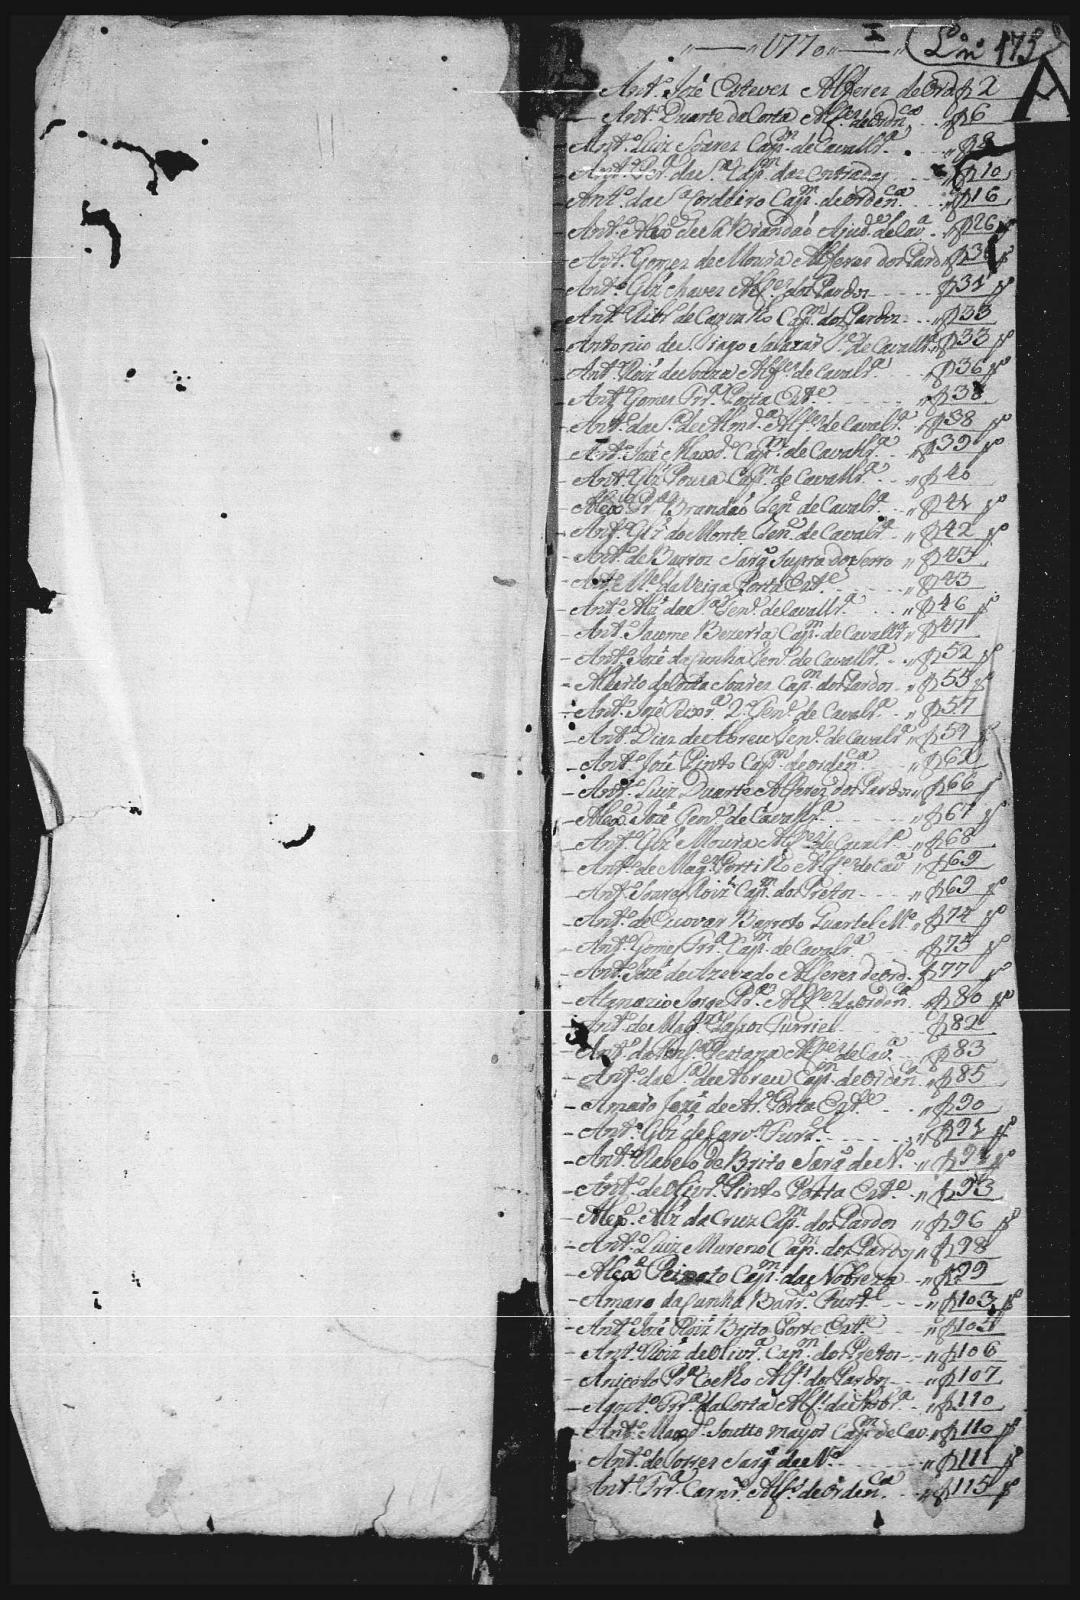 1770 I L.º n.º 175
A
Ant.º José Esteves Alferes de Ord. f 2
Ant.º Duarte da Costa Alf.es de orden.ça f 6
Ant.º Luiz Soares Cap.m de Cavallr.ª f 8
Ant.º Per.ª da S.ª Cap.m das Entradas f 10
Ant.º da S.ª Cordeiro Cap.m de orden.ça f 16
Ant.º Alex.e de Sá Brandaó Ajud.e de Cav.ª f 26
Ant.º Gomes de Moura Alferes dos Pard. f 30
Ant.º Glz' Chaves Alf.es dos Pardos f 31
Ant.º Ribr.º de Carvalho Cap.m dos Pardos f 33
Antonio de S. Tiago Salazar de Cavallr.ª f 33
Ant.º Roiz' de Souza Alf.es de Cavalr.ª f 36
Ant.º Gomes Frr.ª Porta Est.e f 38
Ant.º da S.ª de Almd.ª Alf.es de Cavalr.ª f 38
Ant.º José Maxd.º Cap.m de Cavallr.ª f 39
Ant.º Glz' Cap.m de Cavallr.ª f 40
Alex.e Pr.ª Brandaó Ten.e de Cavalr.ª f 41
Ant.º Glz' do Monte Ten.e de Cavalr.ª f 42
Ant.º de Barros Sarg.º Supra do Serro f 43
Ant.º M.el da Veiga Porta Est.e f 43
Ant.º Alz' da S.ª Ten.e de Cavallr.ª f 46
Ant.º Jacome Bezerra Cap.m de Cavallr.ª f 47
Ant.º José da Cunha Ten.e de Cavallr.ª f 52
Alberto da Costa Soares Cap.m dos Pardos f 55
Ant.º José Peixr.ª 2.º Ten.e de Cavalr.ª f 57
Ant.º Dias de Abreu Ten.e de Cavalr.ª f 59
Ant.º José Pinto Cap.m de orden.ça f 62
Ant.º Luiz Duarte Alferes dos Pardos f 66
Alex.e José Ten.e de Cavallr.ª f 67
Ant.º Glz' Moura Alf.es de Cavalr.ª f 68
Ant.º de Mag.es Portilho Alf.es de Cav.ª f 69
Ant.º Soares Roiz' Cap.m dos Pretos f 69
Ant.º de Escovar Barreto Quartel M.e f 74
Ant.º Gomes Frr.ª Cap.m de Cavalr.ª f 75
Ant.º José de Azevedo Alferes de ord. f 77
Atanazio Jorge Pr.ª Alf.es de orden.ça f 80
Ant.º de Mag.es Furriel f 82
Ant.º da Pestana Alf.es de Cav.ª f 83
Ant.º da S.ª de Abreu Cap.m de orden.ça f 85
Amaro José de Ar.º Porta Est.e f 90
Ant.º Glz' de Carv.º Furr.l f 91
Ant.º Rabelo de Brito Sarg.º de N.º f 92
Ant.º de Olivr.ª Pinto Porta Est.e f 93
Alex.e Alz' da Cruz Cap.m dos Pardos f 96
Ant.º Luiz Moreno Cap.m dos Pardos f 98
Alex.e Peixoto Cap.m da Nobreza f 99
Amaro da Cunha Barr.s Furr.l f 103
Ant.º José Roiz' Brito Porte Est.e f 105
Ant.º Roiz' de Olivr.ª Cap.m dos Pretos f 106
Aniceto Pr.ª Coelho Alf.s dos Pardos f 107
Agost.º Frr.ª da Costa Alf.s da Nobr.ª f 110
Ant.º Maxd.º Soutto mayor Cap.m de Cav. f 110
Ant.º de Torres Sarg.º de N.º f 111
Ant.º Frr.ª Carnr.º Alf.s de orden.ça f 115